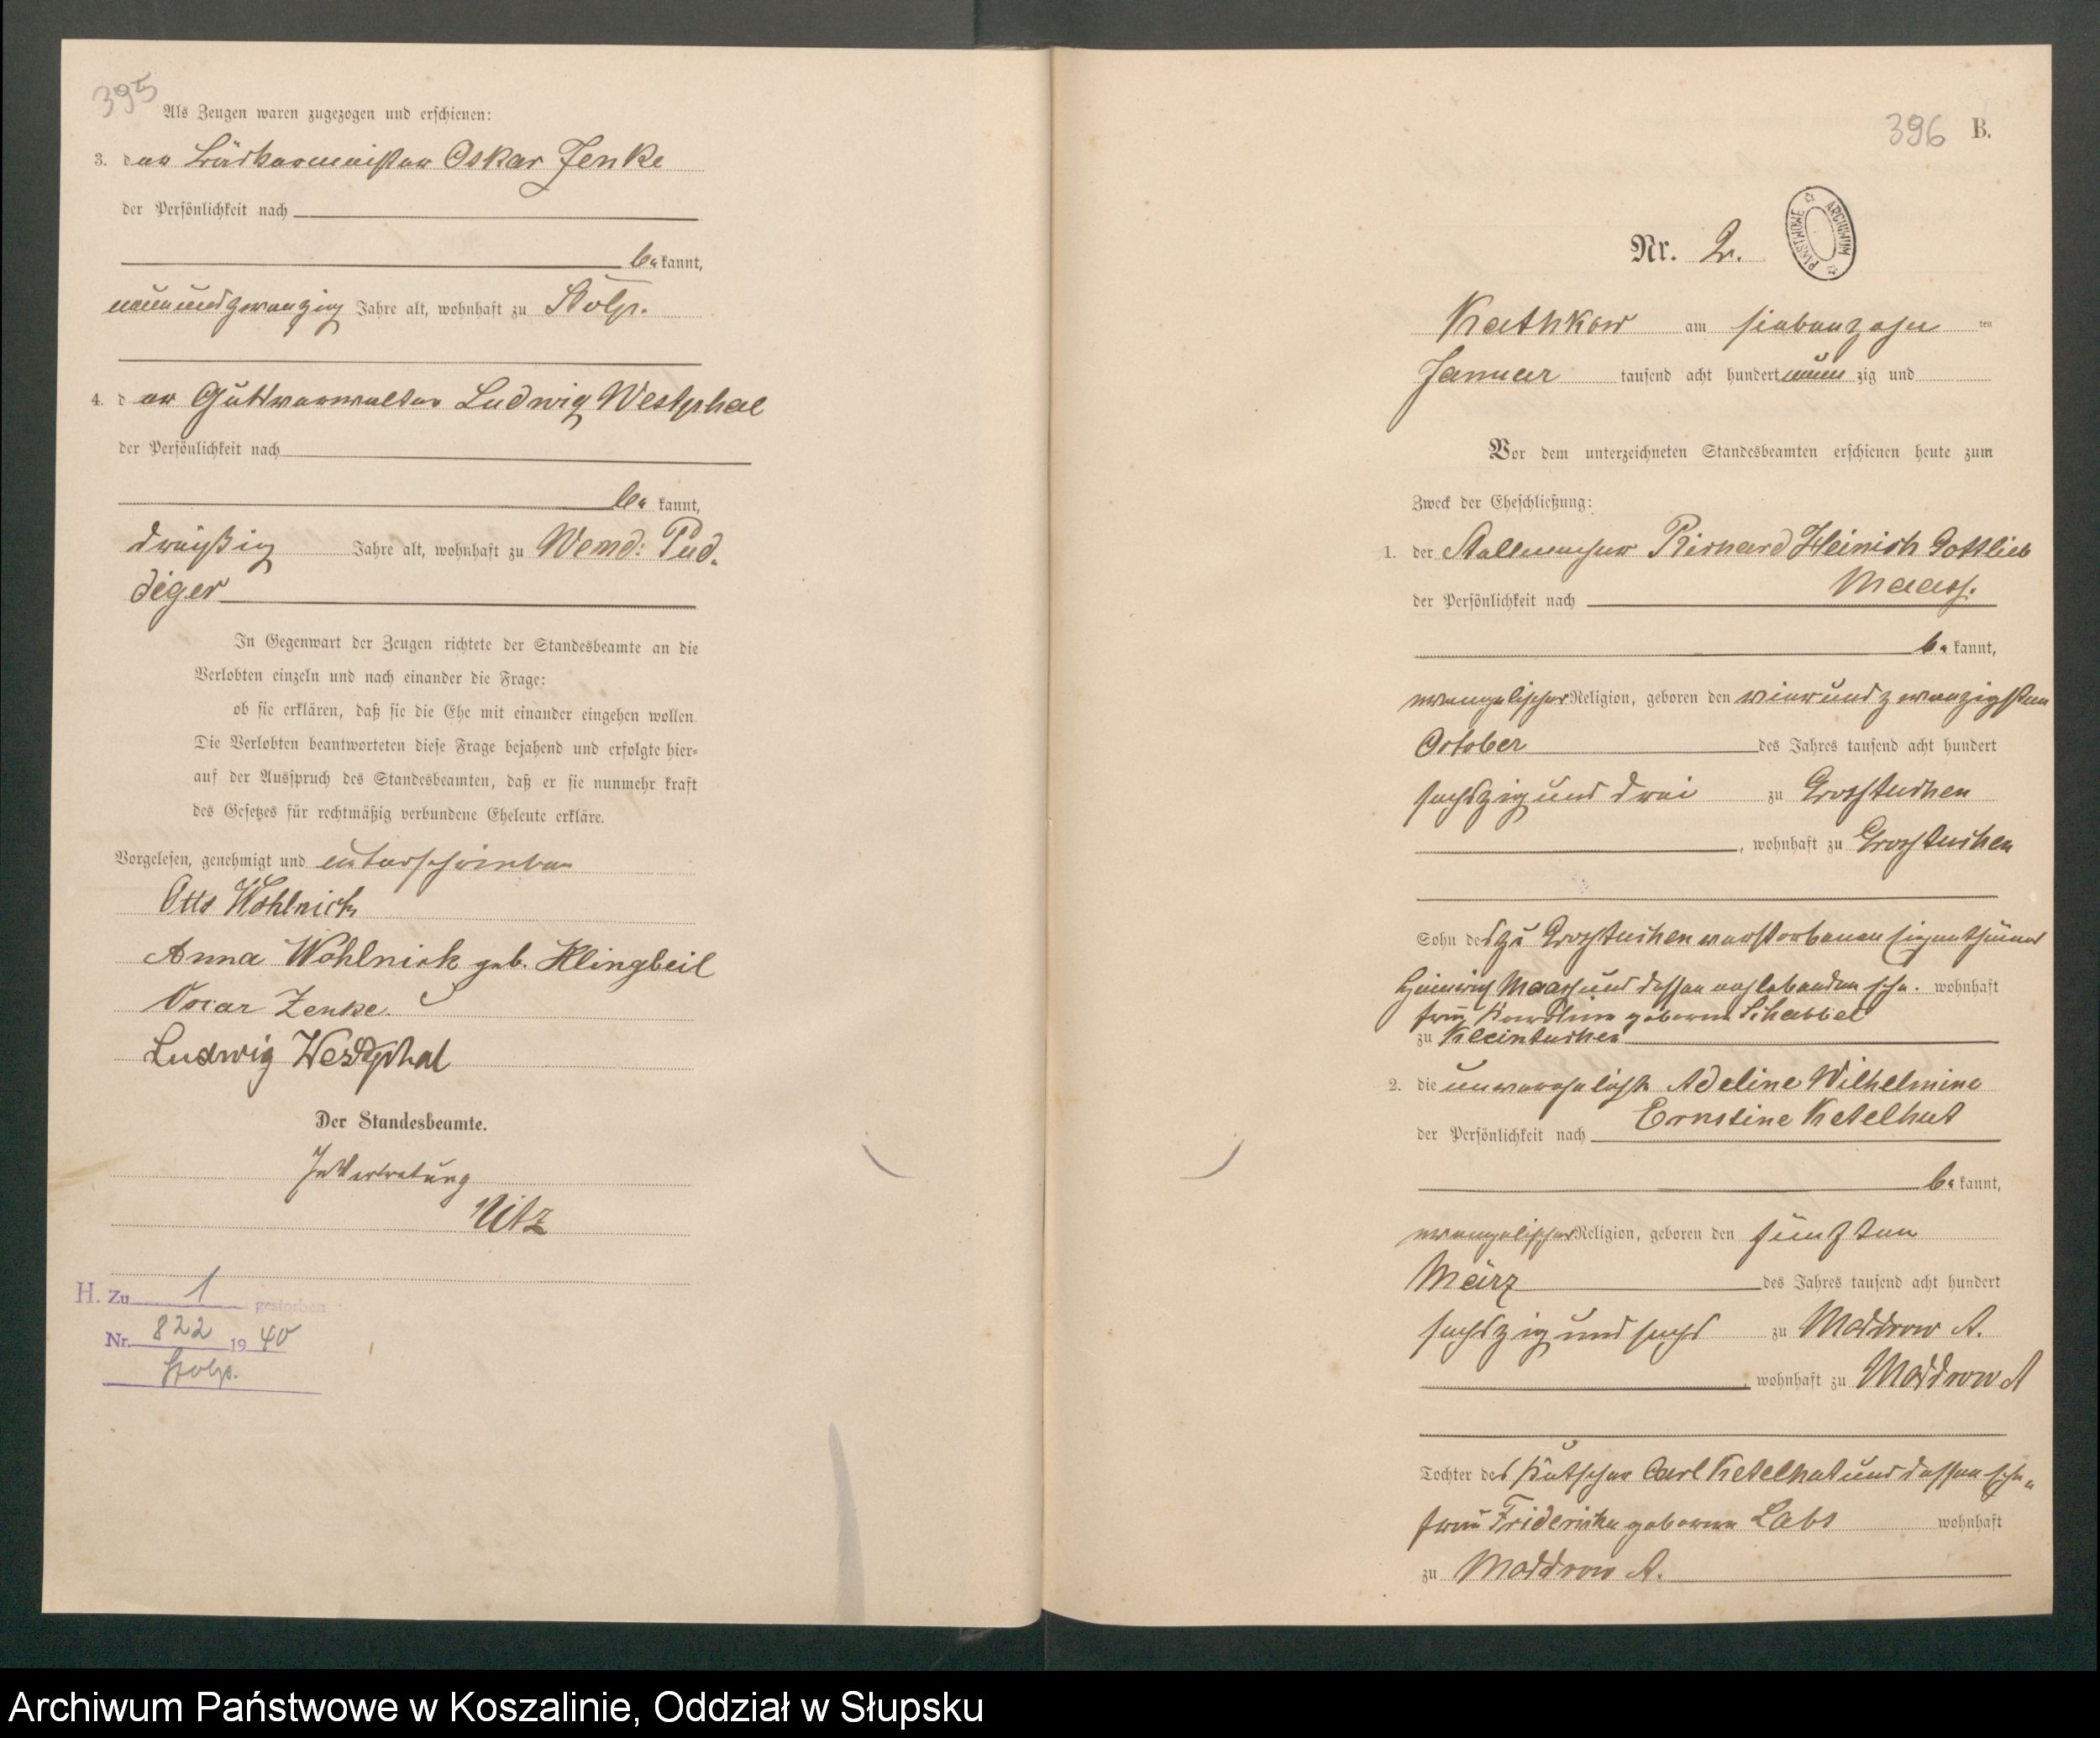 395
Als Zeugen waren zugezogen und erschienen:
3. der Bäckermeister Oskar Zenke
der Persönlichkeit nach
be kannt,
neunundzwanzig Jahre alt, wohnhaft zu Stolp.
4. der Gutsverwalter Ludwig Westphal
der Persönlichkeit nach
be kannt,
dreißig Jahre alt, wohnhaft zu Wend: Pud-
diger
In Gegenwart der Zeugen richtete der Standesbeamte an die
Verlobten einzeln und nach einander die Frage:
ob sie erklären, daß sie die Ehe mit einander eingehen wollen.
Die Verlobten beantworteten diese Frage bejahend und erfolgte hier-
auf der Ausspruch des Standesbeamten, daß er sie nunmehr kraft
des Gesetzes für rechtmäßig verbundene Eheleute erkläre.
Vorgelesen, genehmigt und unterschrieben
Otto Wohlnick
Anna Wohlnick geb. Klingbeil
Oscar Zenke.
Ludwig Westphal
Der Standesbeamte.
In Vertretung
Nitz
H. Zu 1 gestorben
Nr. 822 19 40
Stolp.
396 B.
ARCHIWUM PAŃSTWOWE
Nr. 2.
Kathkow am siebenzehn ten
Januar tausend acht hundert neun zig und
Vor dem unterzeichneten Standesbeamten erschienen heute zum
Zweck der Eheschließung:
1. der Stellmacher Richard Heinrich Gottlieb
Maass.
der Persönlichkeit nach
be kannt,
evangelischer Religion, geboren den vierundzwanzigsten
October des Jahres tausend acht hundert
sechszig und drei zu Grosstuchen
, wohnhaft zu Grosstuchen
Sohn des zu Grosstuchen verstorbenen Eigenthümer
Heinrich Maass und dessen nachlebenden Ehe- wohnhaft
frau Karoline geborene Schabbel
zu Kleintuchen
2. die unverehelichte Adeline Wilhelmine
Ernstine Ketelhut
der Persönlichkeit nach
be kannt,
evangelischer Religion, geboren den fünften
März des Jahres tausend acht hundert
sechszig und sechs zu Moddrow A.
, wohnhaft zu Moddrow A
Tochter des Kutscher Carl Ketelhut und dessen Ehe-
frau Friderike geborene Labs wohnhaft
zu Moddrow A.
Archiwum Państwowe w Koszalinie, Oddział w Słupsku